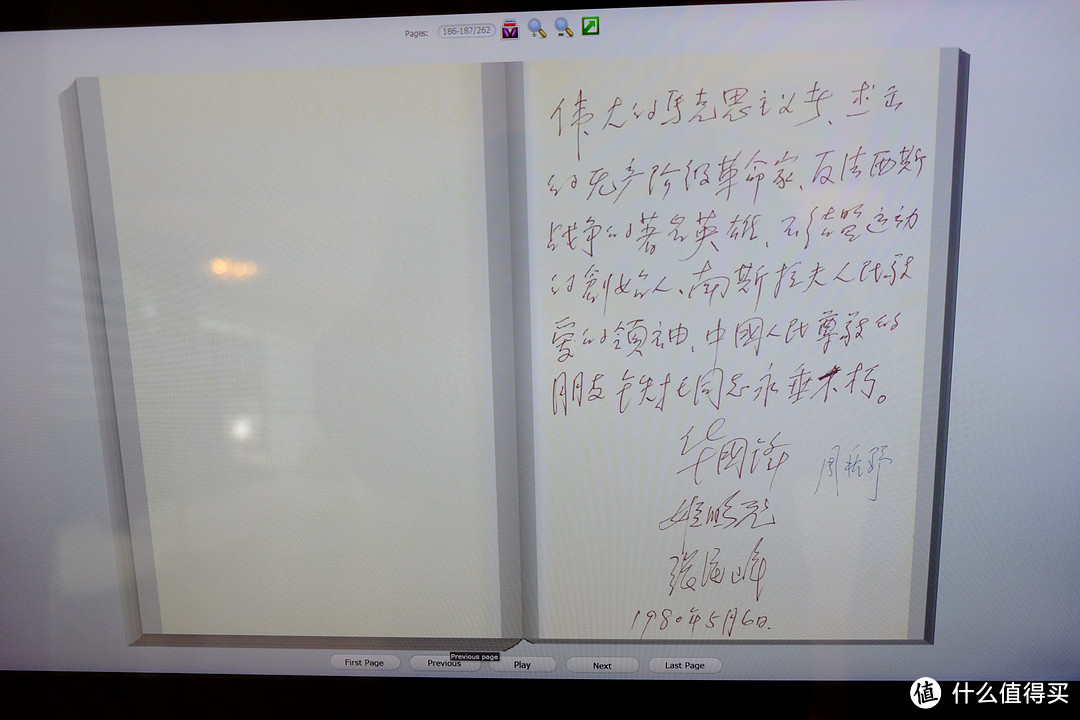 Pages: 186-187/262
伟大的馬克思主义者、杰出
的无产阶级革命家、反法西斯
战争的著名英雄、不结盟运动
的創始人、南斯拉夫人民敬
爱的領袖、中國人民尊敬的
朋友铁托同志永垂不朽。
华國锋
周秋野
姬鹏飞
张海峰
1980年5月6日.
Previous page
First Page Previous Play Next Last Page
值 什么值得买